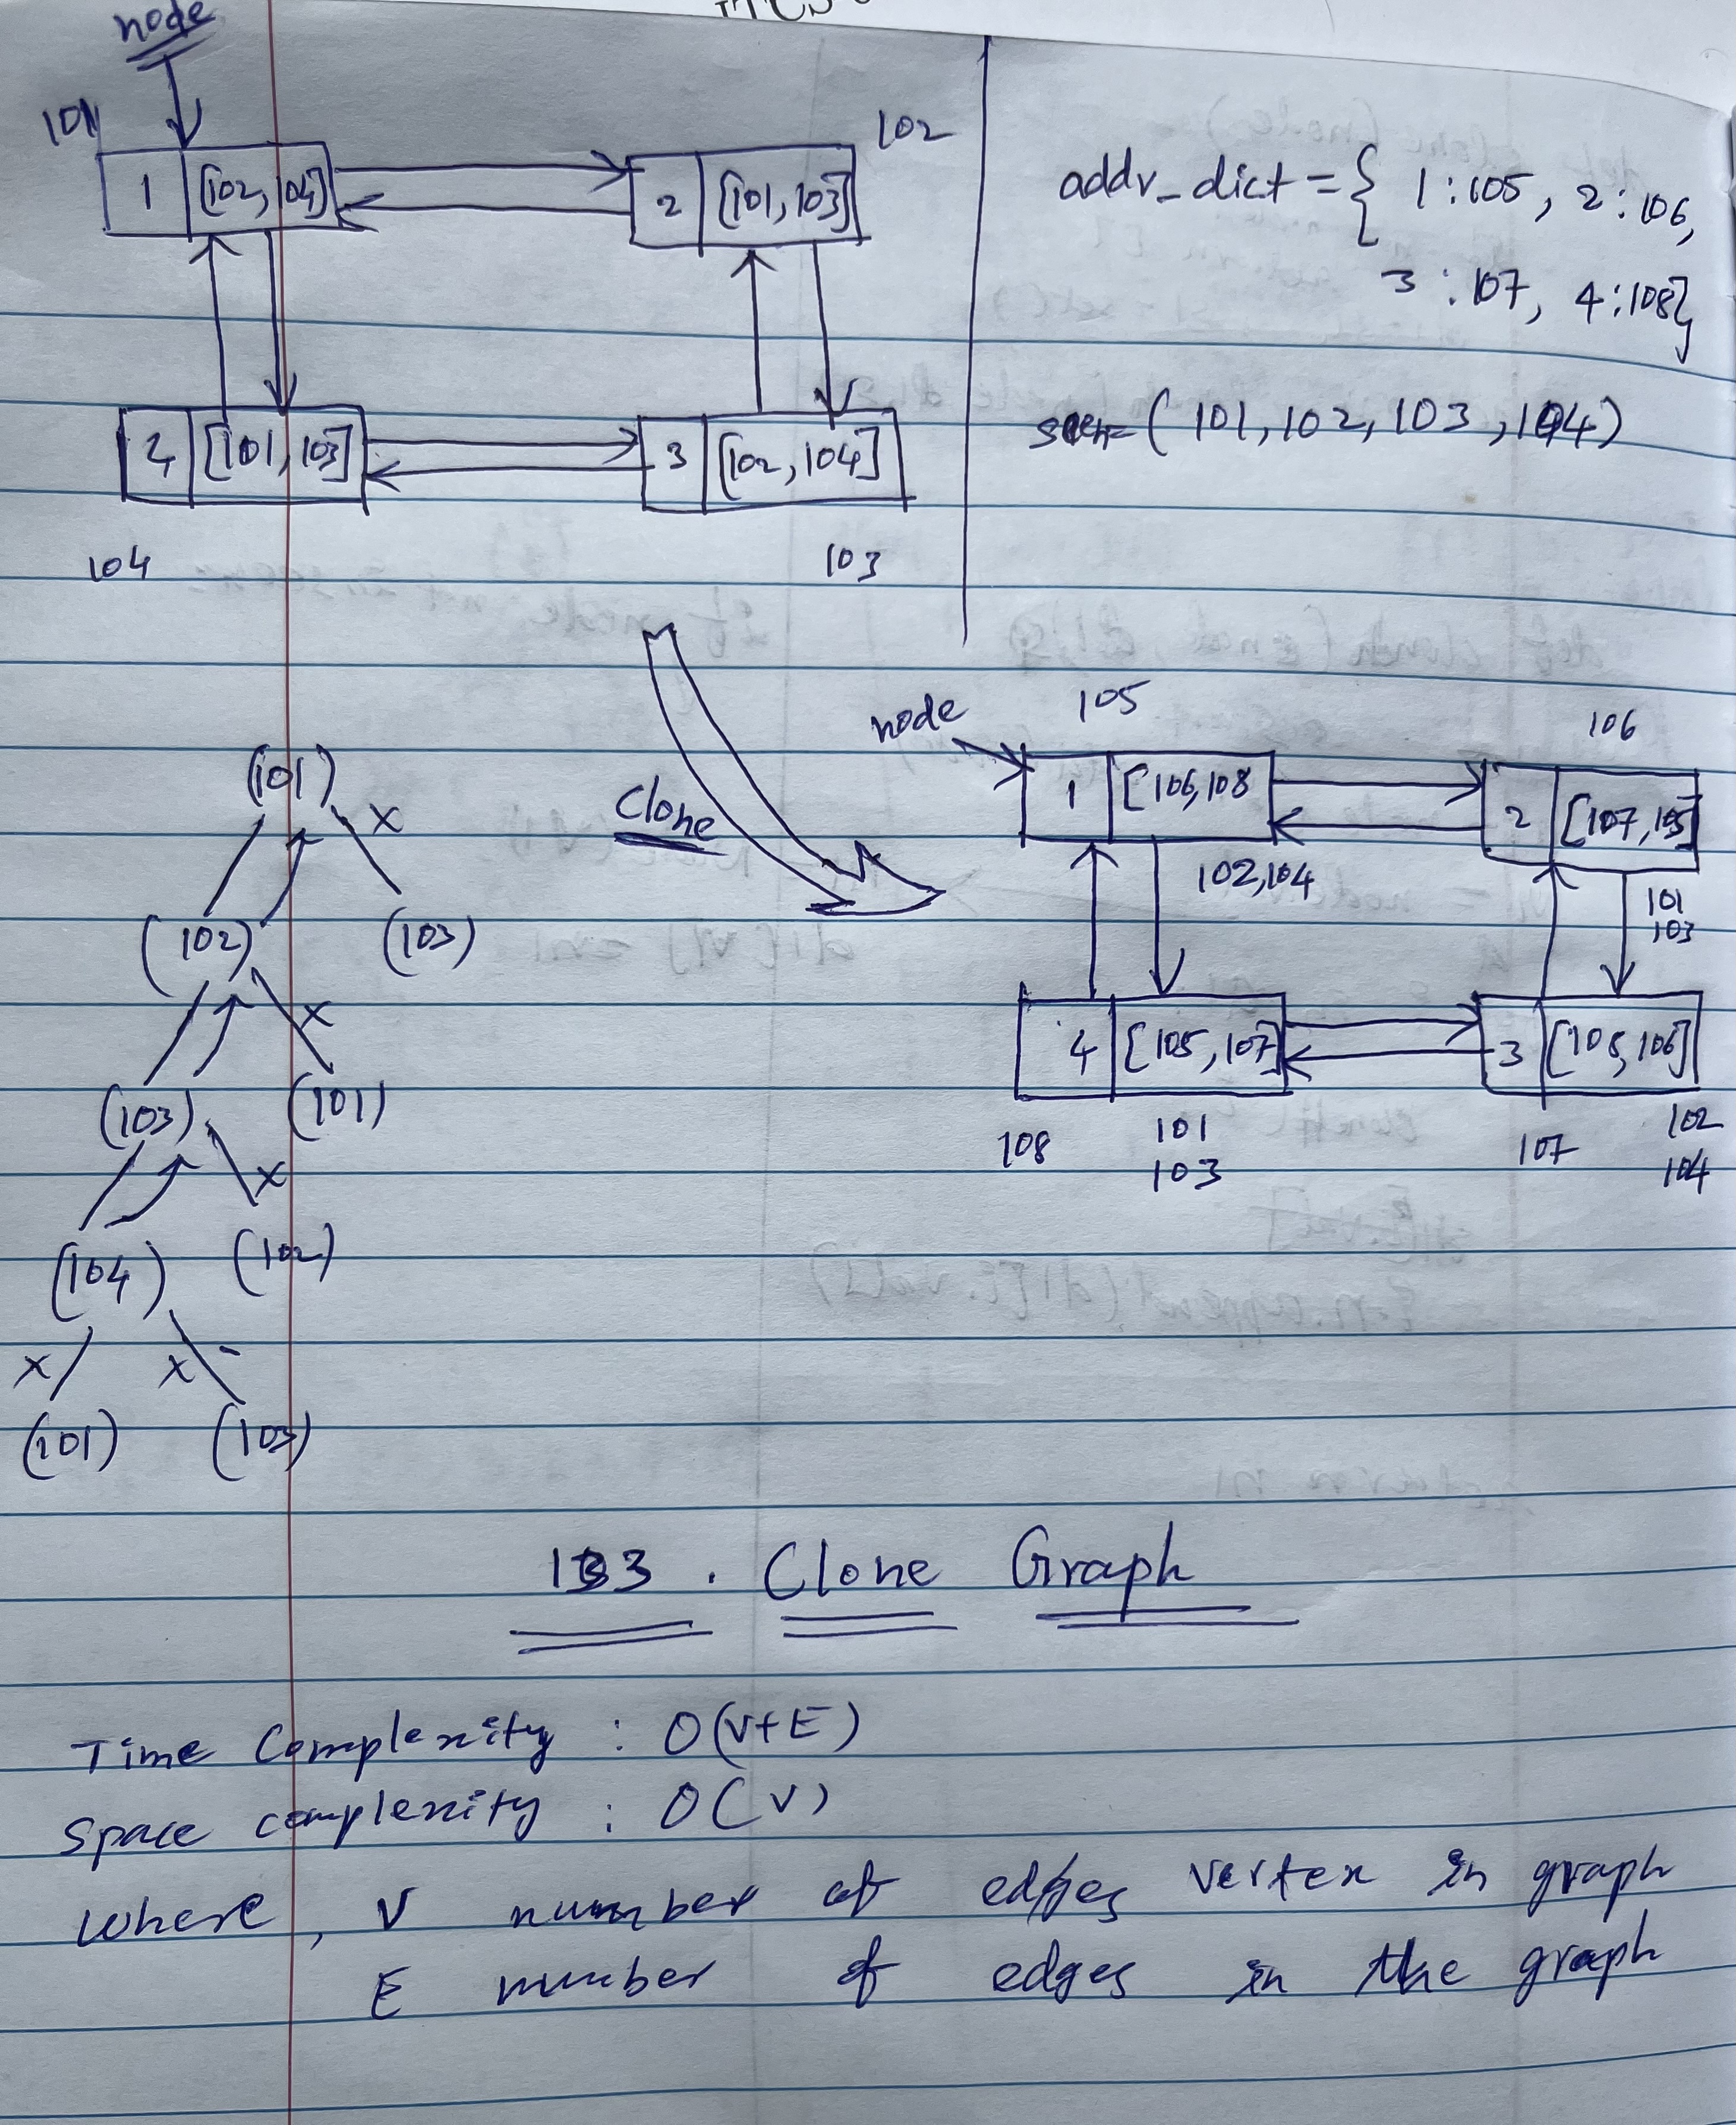 node
101
102
1 [102,104]
2 [101,103]
addr_dict = { 1:105, 2:106,
3:107, 4:108}
seen = ( 101, 102, 103, 104)
4 [101,103]
3 [102,104]
104
103
node
105
106
1 [106,108
2 [107,105]
Clone
102,104
101
103
4 [105,107]
3 [108,106]
108
101
103
107
102
104
(101)
x
(102) (103)
x
(103) (101)
x
(104) (102)
x x
(101) (103)
133. Clone Graph
Time Complexity : O(V+E)
Space complexity : O(V)
where, V number of edges vertex in graph
E number of edges in the graph